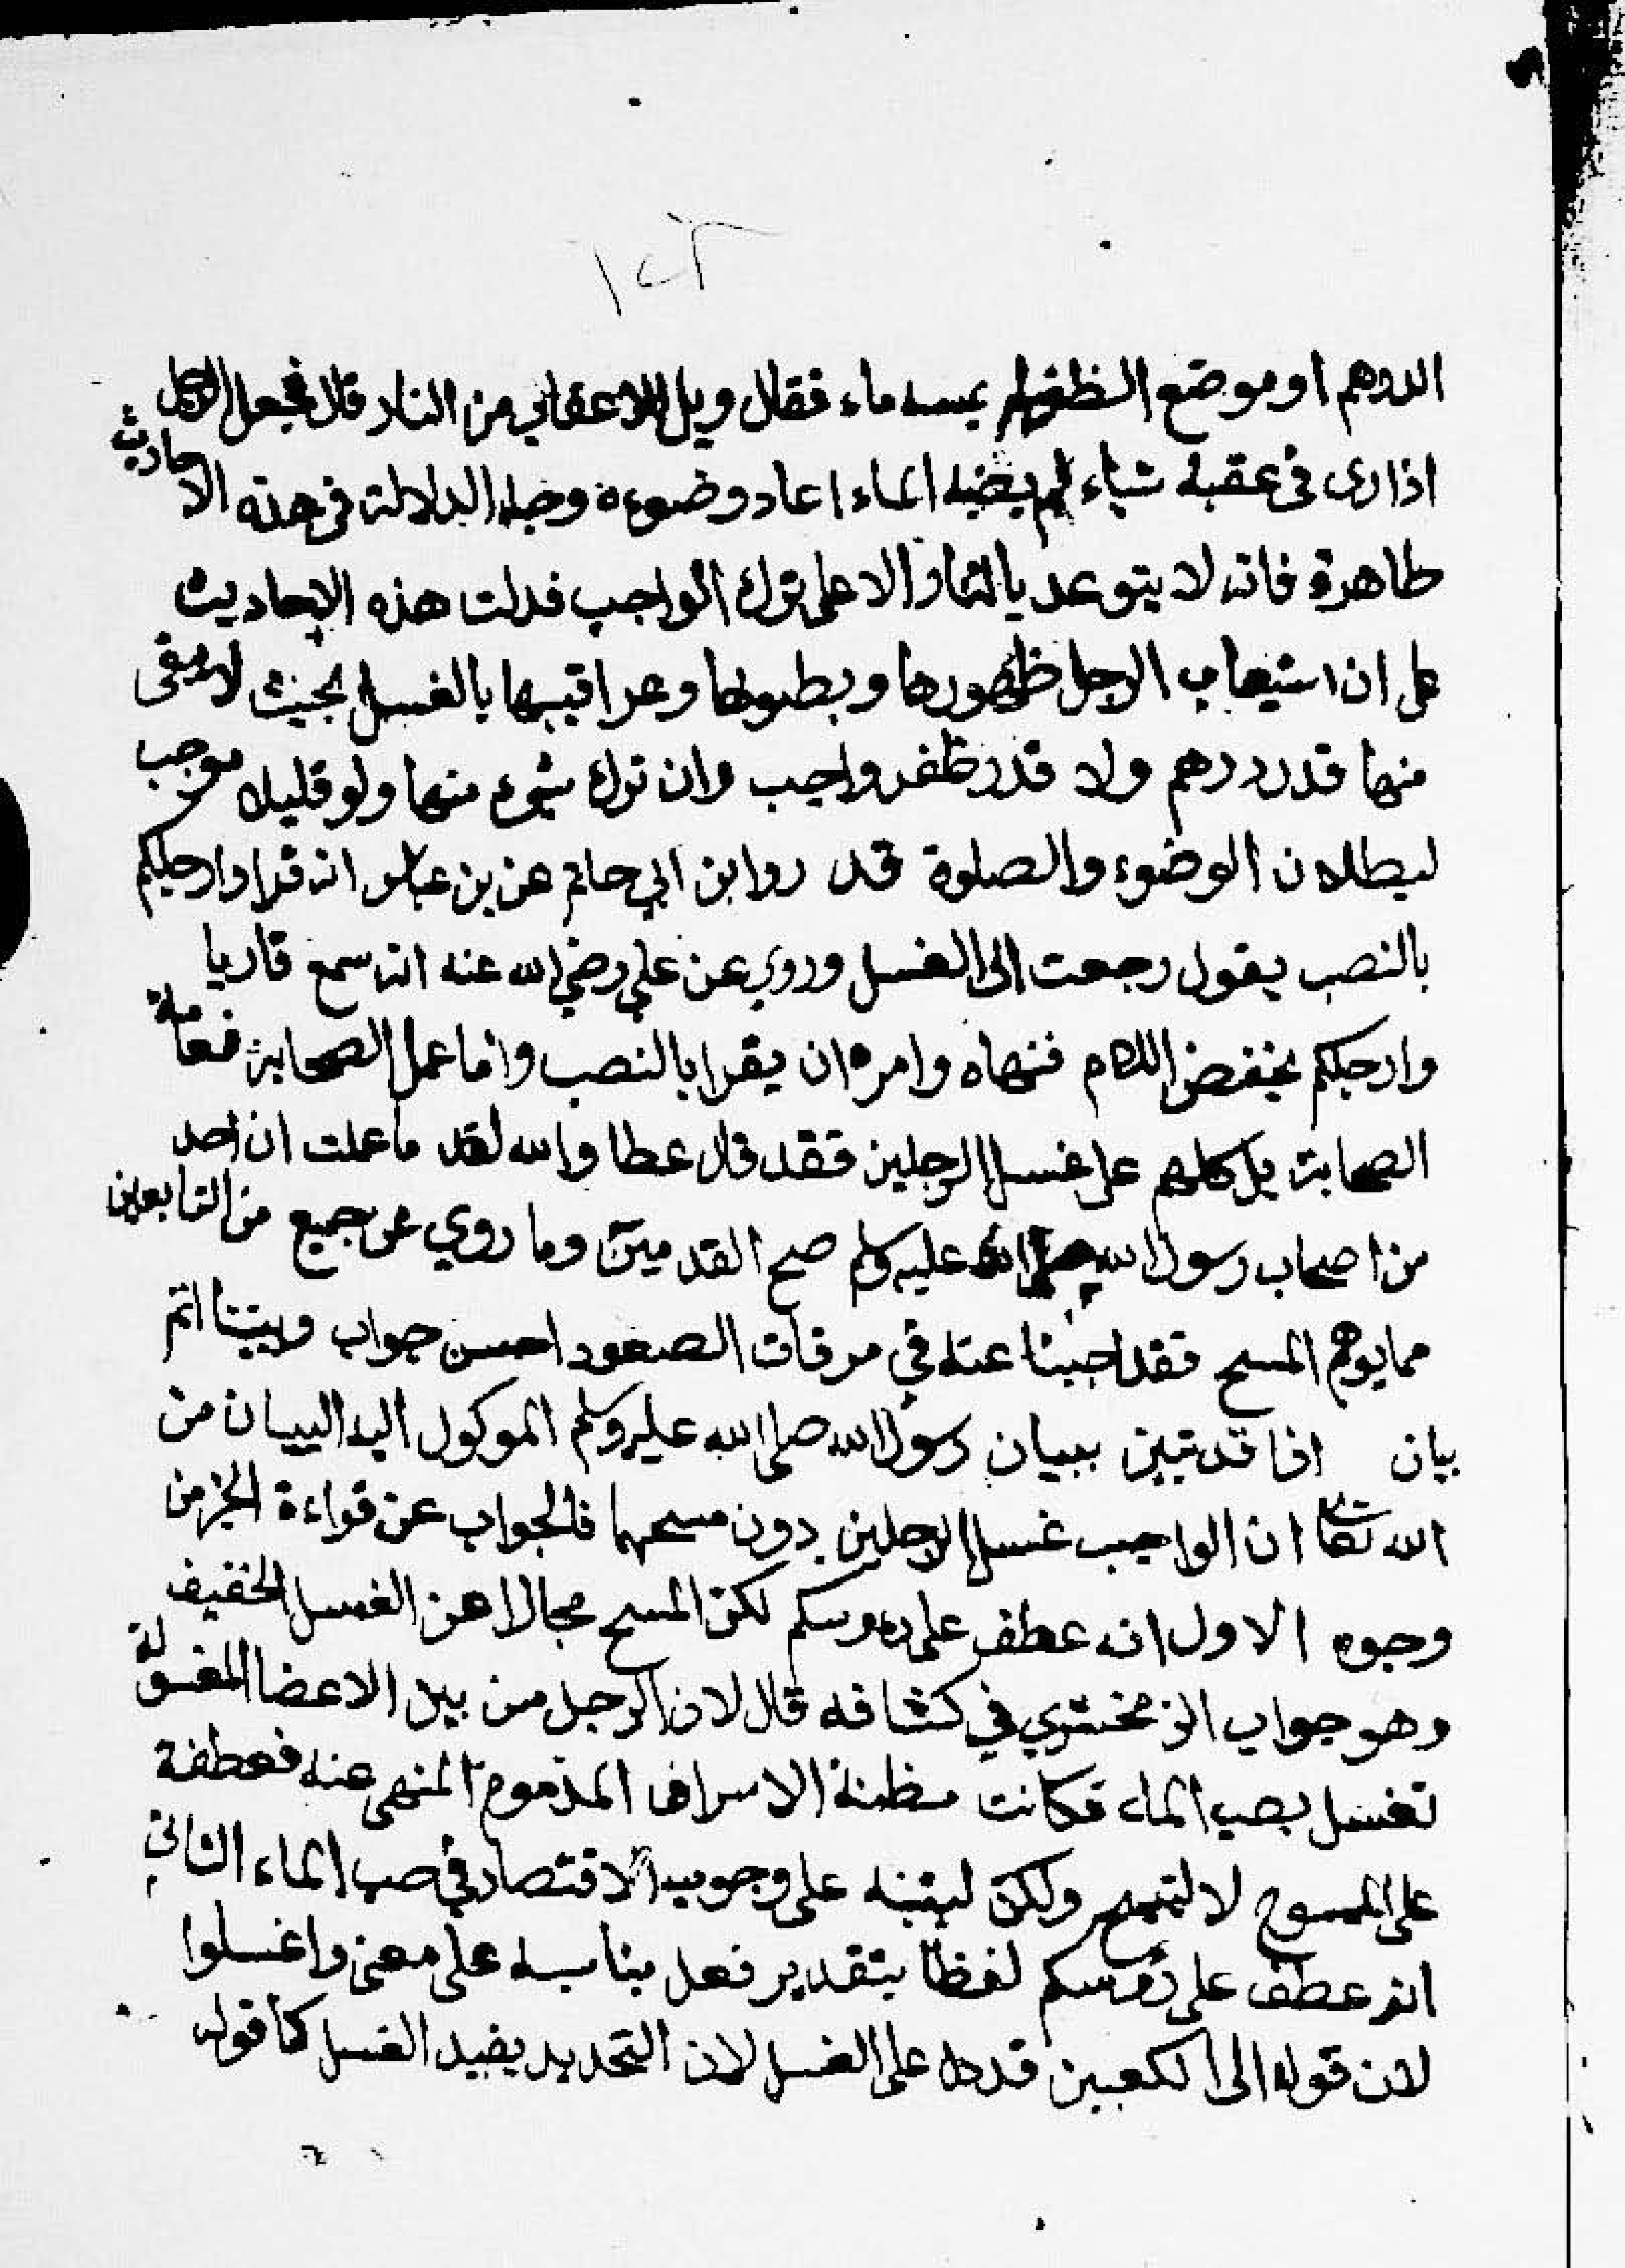 ١٢٣
الدرهم او موضع الظفر لم يمسه ماء فقال ويل للاعقاب من النار قال فجعل الرجل
اذا رى فى عقبه شياء لم يصبه الماء اعاد وضوءه وجه الدلالة فى هذه الاحاديث
ظاهرة فانه لا يتوعد بالنار الا على ترك الواجب فدلت هذه الاحاديث
على ان استيعاب الرجل ظهورها وبطونها وعراقيبها بالغسل بحيث لا يبقى
منها قدر درهم ولا قدر ظفر واجب وان ترك شىء منها ولو قليلا موجب
لبطلان الوضوء والصلوة قد روا بن ابي حاتم عن بن عباس انه قرا وارجلكم
بالنصب يقول رجعت الى الغسل وروي عن علي رضي الله عنه انه سمع قاريا
وارجلكم بخفض اللام فنهاه وامره ان يقرا بالنصب واما عمل الصحابة فعامة
الصحابة بل كلهم على غسل الرجلين فقد قال عطا والله لقد ما علمت ان احد
من اصحاب رسول الله صلى الله عليه وسلم صح القدمين وما روي عن جميع من التابعين
مما يوهم المسح فقد اجبنا عنه في مرقات الصعود احسن جواب وبينا اتم
بيان اذا قد تبين ببيان رسول الله صلى الله عليه وسلم الموكول اليه البيان من
الله تعالى ان الواجب غسل الرجلين دون مسحهما فالجواب عن قراءة الجر من
وجوه الاول انه عطف على رءوسكم لكن المسح مجازا عن الغسل الخفيف
وهو جواب الزمخشري في كشافه قال لان الرجل من بين الاعضا المغسولة
تغسل بصب الماء فكانت مظنة الاسراف المذموم المنهى عنه فعطفة
على الممسوح لا لتمسح ولكن لينبه على وجوب الاقتصاد في صب الماء الثاني
انه عطف على رؤسكم لفظا بتقدير فعل يناسبه على معنى واغسلوا
لان قوله الى الكعبين قد دل على الغسل لان التحديد يفيد الغسل كما قوله